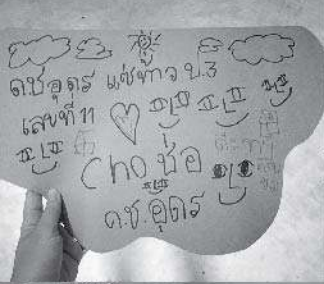 ด.ช.อุดร แซ่ท้าว ป.3
เลขที่ 11
Cho ช่อ
ด.ช. อุดร